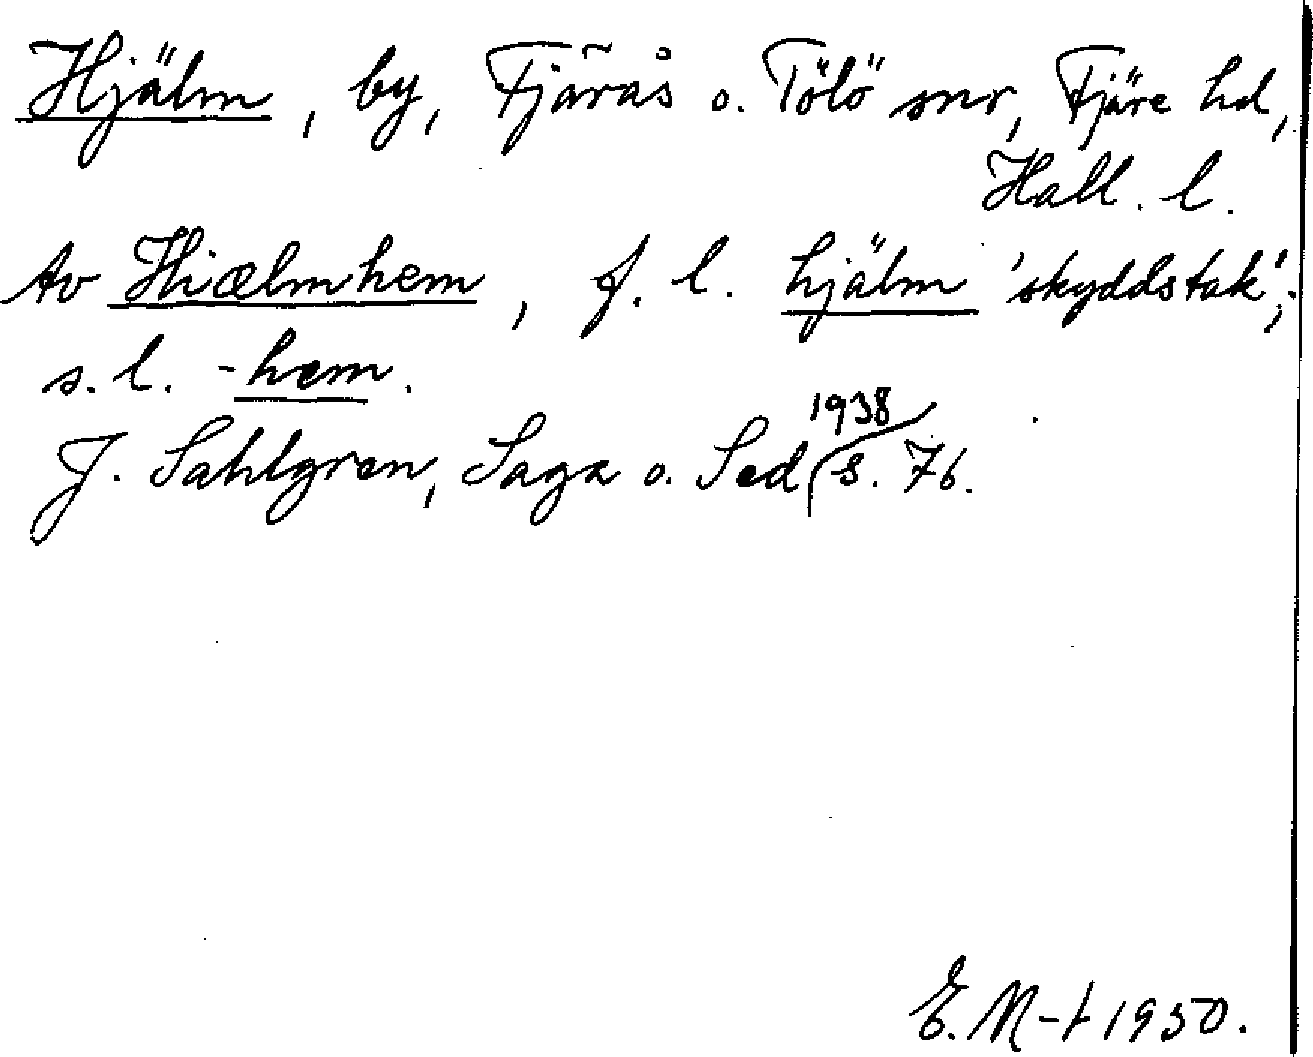 Hjälm, by, Fjärås o. Tölö snr, Fjäre hd,
Hall. l.
Av Hiælmhem, f. l. hjälm 'skyddstak';
s. l. -hem.
J. Sahlgren, Saga o. Sed 1938 s. 76.
E. M-t 1950.